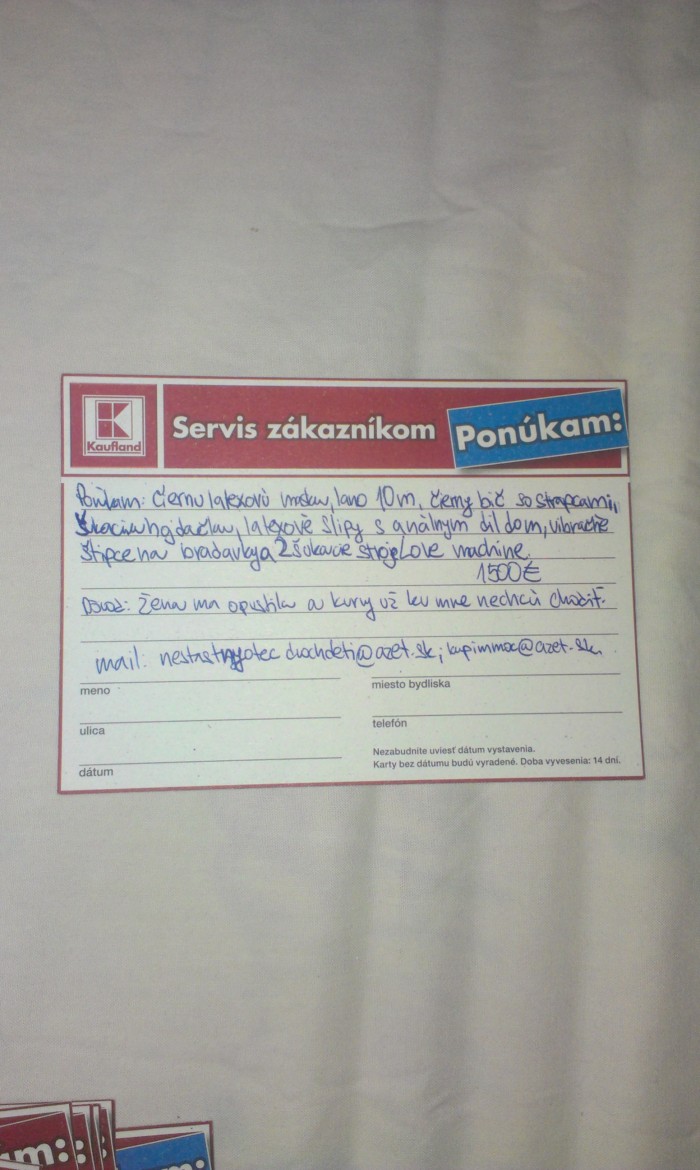 Kaufland
Servis zákazníkom
Ponúkam:
Ponúkam: čiernu latexovú masku, lano 10m, čierny bič so strapcami,
šukaciu hojdačku, latexové slipy s análnym dildom, vibračné
štipce na bradavky a 2 šukacie stroje Love machine.
1500€
Dôvod: žena ma opustila a kurvy už ku mne nechcú chodiť.
mail: nestastnyotecdvochdeti@azet.sk; kupimmoc@azet.sk
meno
miesto bydliska
ulica
telefón
dátum
Nezabudnite uviesť dátum vystavenia.
Karty bez dátumu budú vyradené. Doba vyvesenia: 14 dní.
am:
m: